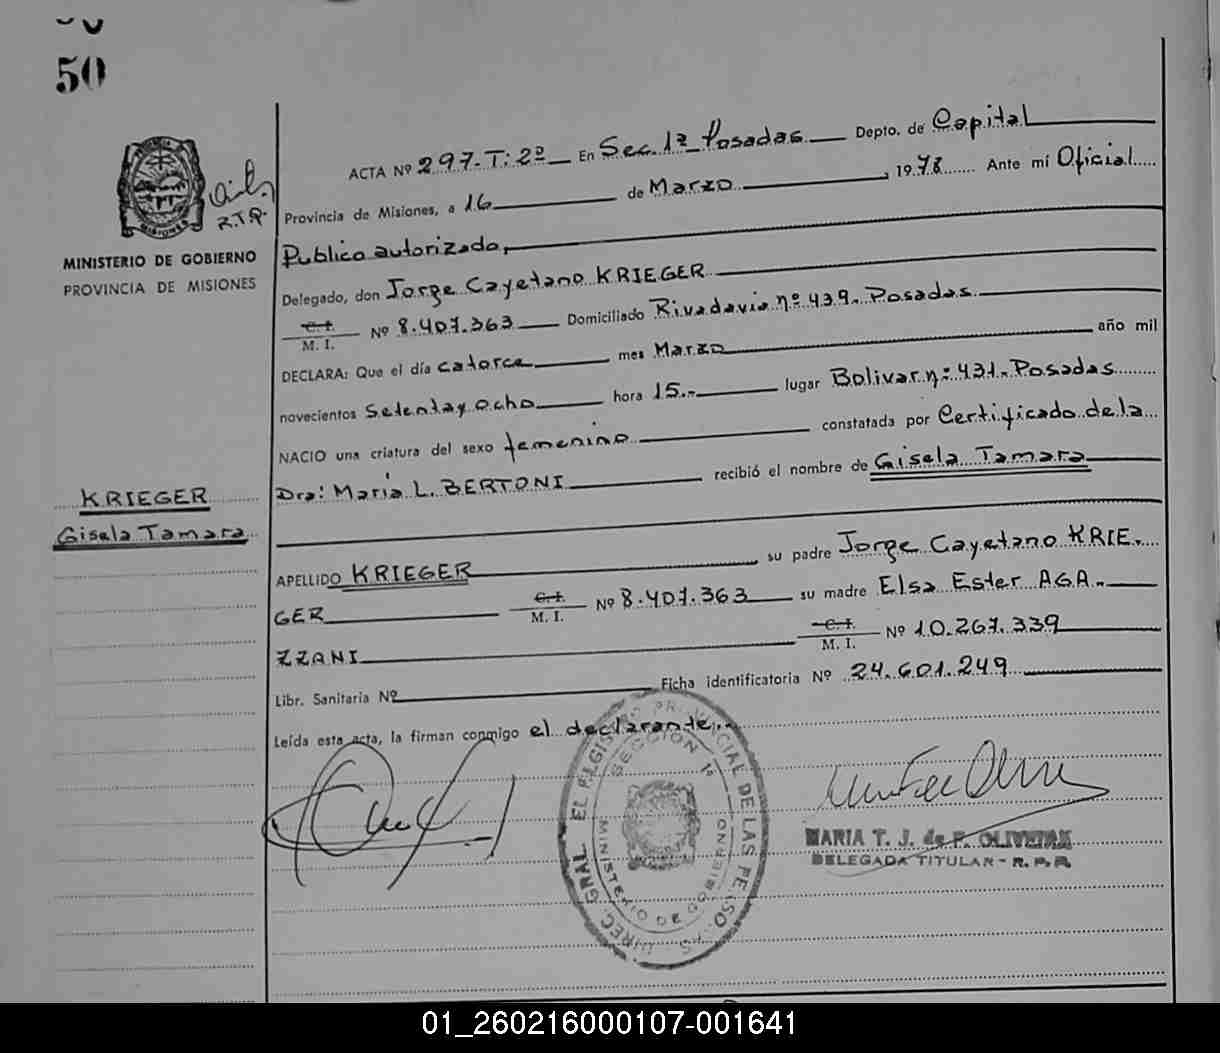 50
ACTA Nº 297-T: 2º En Sec. 1ª Posadas Depto. de Capital
Provincia de Misiones, a 16 de Marzo, 1978 Ante mí Oficial
MINISTERIO DE GOBIERNO
PROVINCIA DE MISIONES
Publico autorizado,
Delegado, don Jorge Cayetano KRIEGER
C. I.
M. I. Nº 8.407.363 Domiciliado Rivadavia nº 439. Posadas
DECLARA: Que el día catorce mes Marzo año mil
novecientos Setentayocho hora 15.- lugar Bolivar nº 431. Posadas
NACIO una criatura del sexo femenino constatada por Certificado de la
Dra: Maria L. BERTONI recibió el nombre de Gisela Tamara
KRIEGER
Gisela Tamara
APELLIDO KRIEGER su padre Jorge Cayetano KRIE-
GER C. I. M. I. Nº 8.407.363 su madre Elsa Ester AGA-
ZZANI C. I. M. I. Nº 10.267.339
Libr. Sanitaria Nº Ficha identificatoria Nº 24.601.249
Leída esta acta, la firman conmigo el declarante.-
DIREC. GRAL. EL REGISTRO PROVINCIAL DE LAS PERSONAS
SECCION 1ª
MINISTERIO DE GOBIERNO
MARIA T. J. de P. OLIVEIRA
DELEGADA TITULAR - R. P. P.
01_260216000107-001641